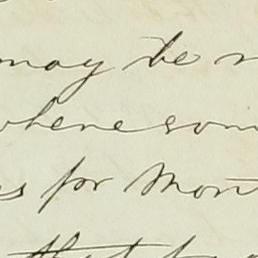 may be
where som
s for Mon
that